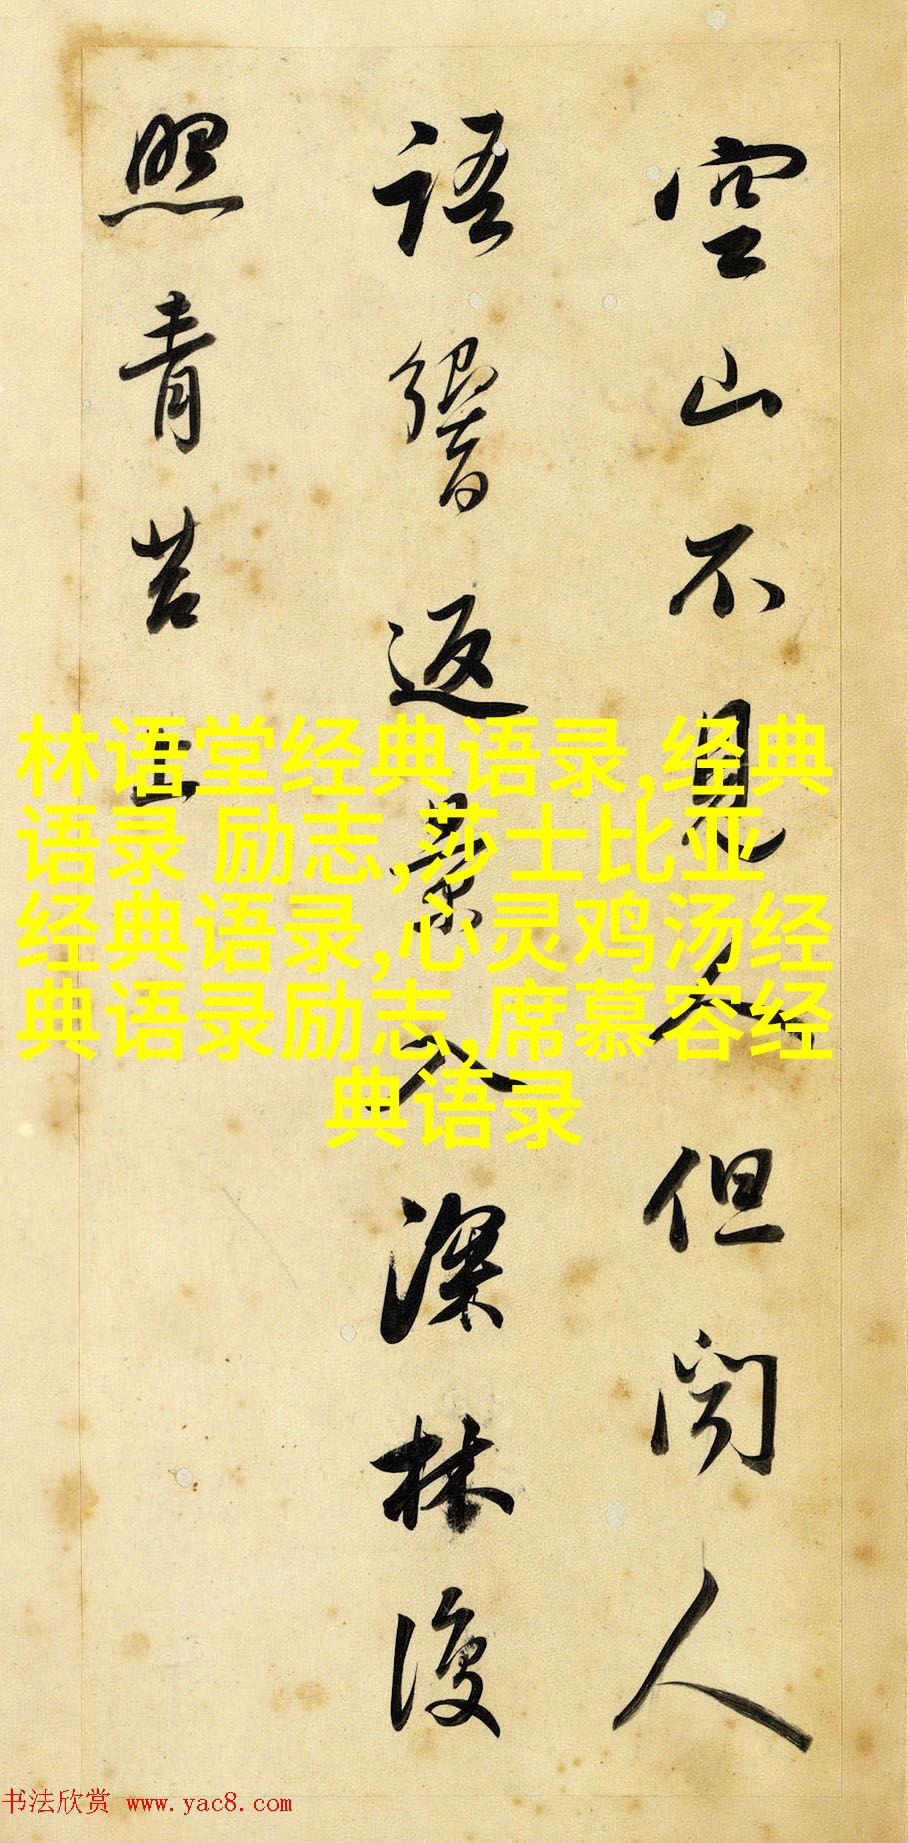 空山不見人但聞人
語響返景入深林復
照青苔上
林语堂经典语录,经典
语录 励志,莎士比亚
经典语录,心灵鸡汤经
典语录励志,席慕容经
典语录
书法欣赏 www.yac8.com